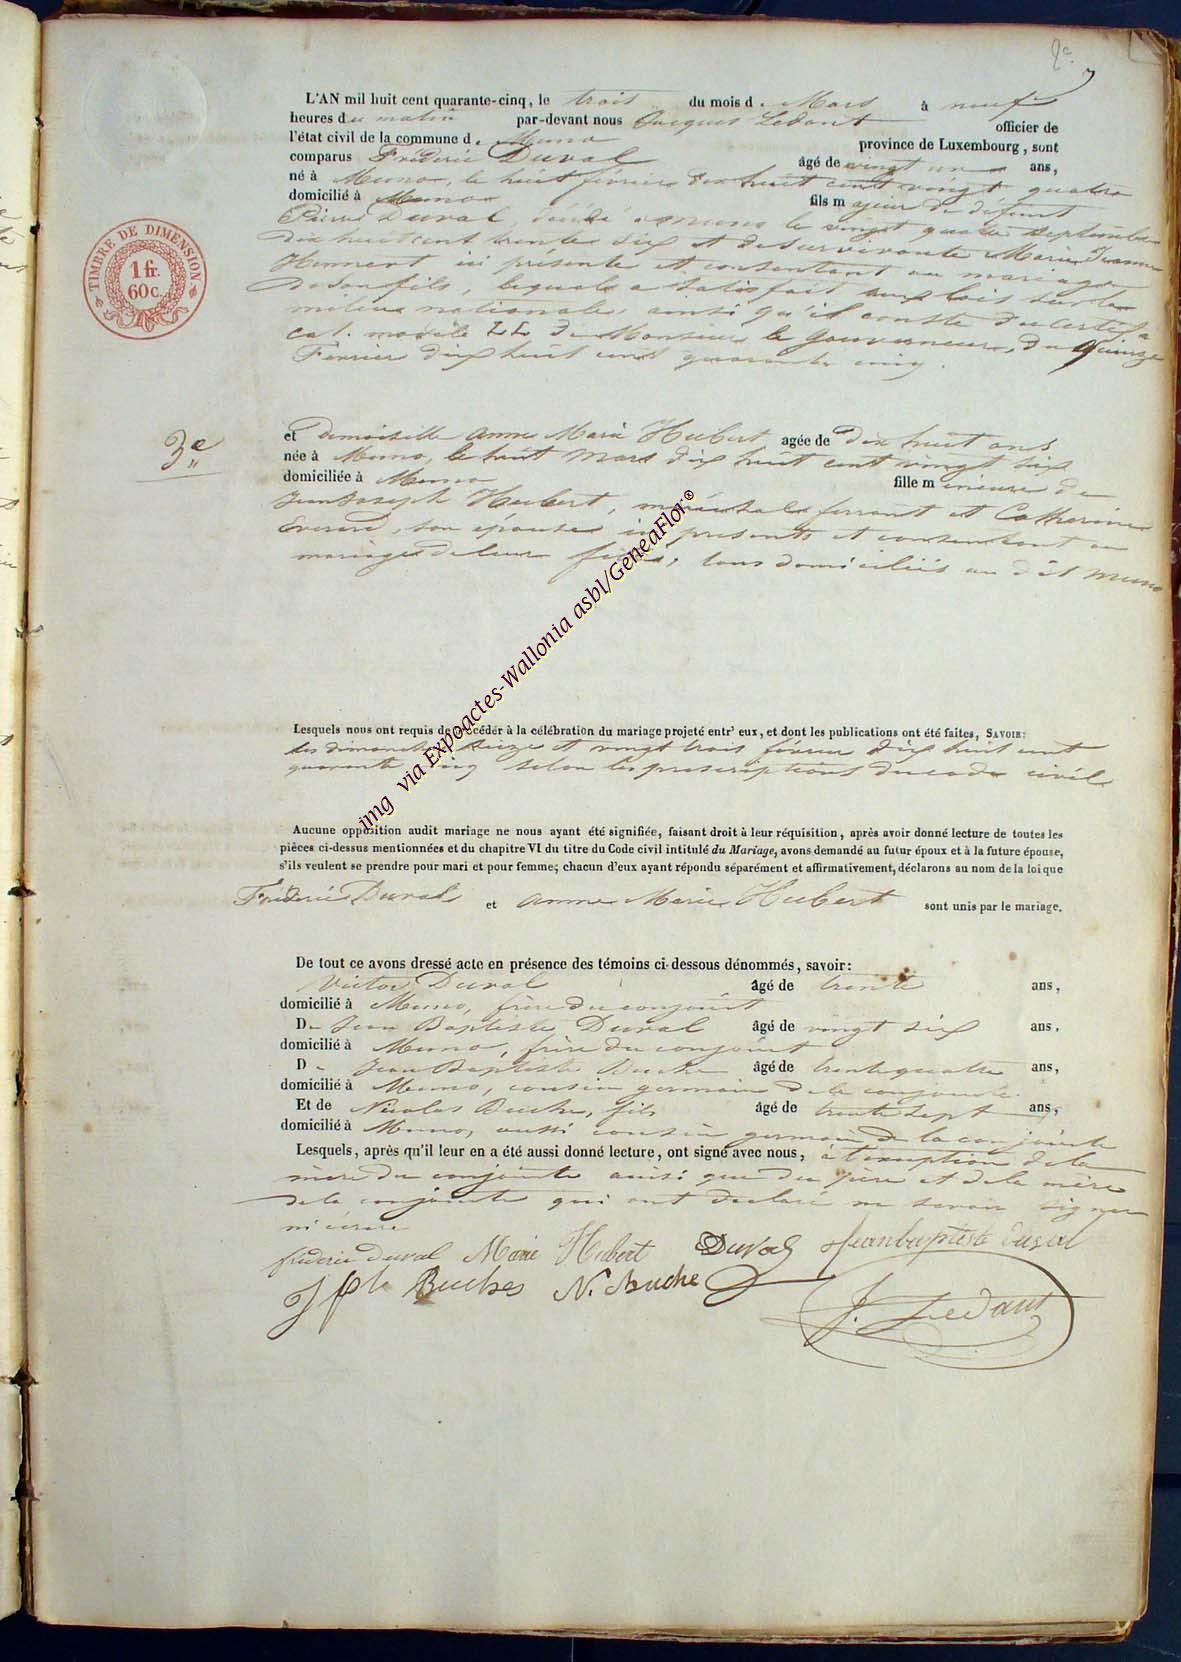 L'AN mil huit cent quarante-cinq, le trois du mois d. Mars à neuf
heures du matin par-devant nous Jacques Ledant officier de
l'état civil de la commune d. Muno province de Luxembourg, sont
comparus Fréderic Duval âgé de vingt un ans,
né à Muno, le huit février dix huit cent vingt quatre
domicilié à Muno fils majeur de défunt
Pierre Duval, décédé a muno le vingt quatre septembre
dix huit cent trente six et de survivante Marie Jeanne
Hennent ici présente et consentant au mariage
de son fils, lequel a satisfait aux lois sur la
milice nationale, ainsi qu'il conste du certifi
cat. modèle LL de Monsieur le Gouverneur, du quinze
Fevrier dix huit cent quarante cinq.
3e
et Demoiselle Anne Marie Hubert agée de dix huit ans
née à Muno, le huit Mars dix huit cent vingt six
domiciliée à Muno fille mineure de
Jean Joseph Hubert, maréchal ferrant et Catherine
Everard, son epouse ici presents et consentant au
mariage de leur fille, tous domiciliés au dit Muno
Lesquels nous ont requis de procéder à la célébration du mariage projeté entr' eux, et dont les publications ont été faites, SAVOIR:
les dimanches seize et vingt trois février dix huit cent
quarante cinq selon les prescriptions du code civil
Aucune opposition audit mariage ne nous ayant été signifiée, faisant droit à leur réquisition, après avoir donné lecture de toutes les
pièces ci-dessus mentionnées et du chapitre VI du titre du Code civil intitulé du Mariage, avons demandé au futur époux et à la future épouse,
s'ils veulent se prendre pour mari et pour femme; chacun d'eux ayant répondu séparément et affirmativement, déclarons au nom de la loi que
Fréderic Duval et Anne Marie Hubert sont unis par le mariage.
De tout ce avons dressé acte en présence des témoins ci-dessous dénommés, savoir:
Victor Duval âgé de trente ans,
domicilié à Muno, frère du conjoint
De Jean Baptiste Duval âgé de vingt six ans,
domicilié à Muno, frère du conjoint
D. Jean Baptiste Buche âgé de trente quatre ans,
domicilié à Muno, cousin germain de la conjointe
Et de Nicolas Buche, fils âgé de trente sept ans,
domicilié à Muno, aussi cousin germain de la conjointe
Lesquels, après qu'il leur en a été aussi donné lecture, ont signé avec nous, à l'exception de la
mère du conjointe ainsi que du père et de la mère
de la conjointe qui ont déclaré ne savoir signer
ni écrire
fréderic duval Marie Hubert Duval Jeanbaptiste duval
J Bte Buches N. Buche J. Ledant
TIMBRE DE DIMENSION
1 fr.
60 c.
img via Expoactes-Wallonia asbl/GeneaFlor®